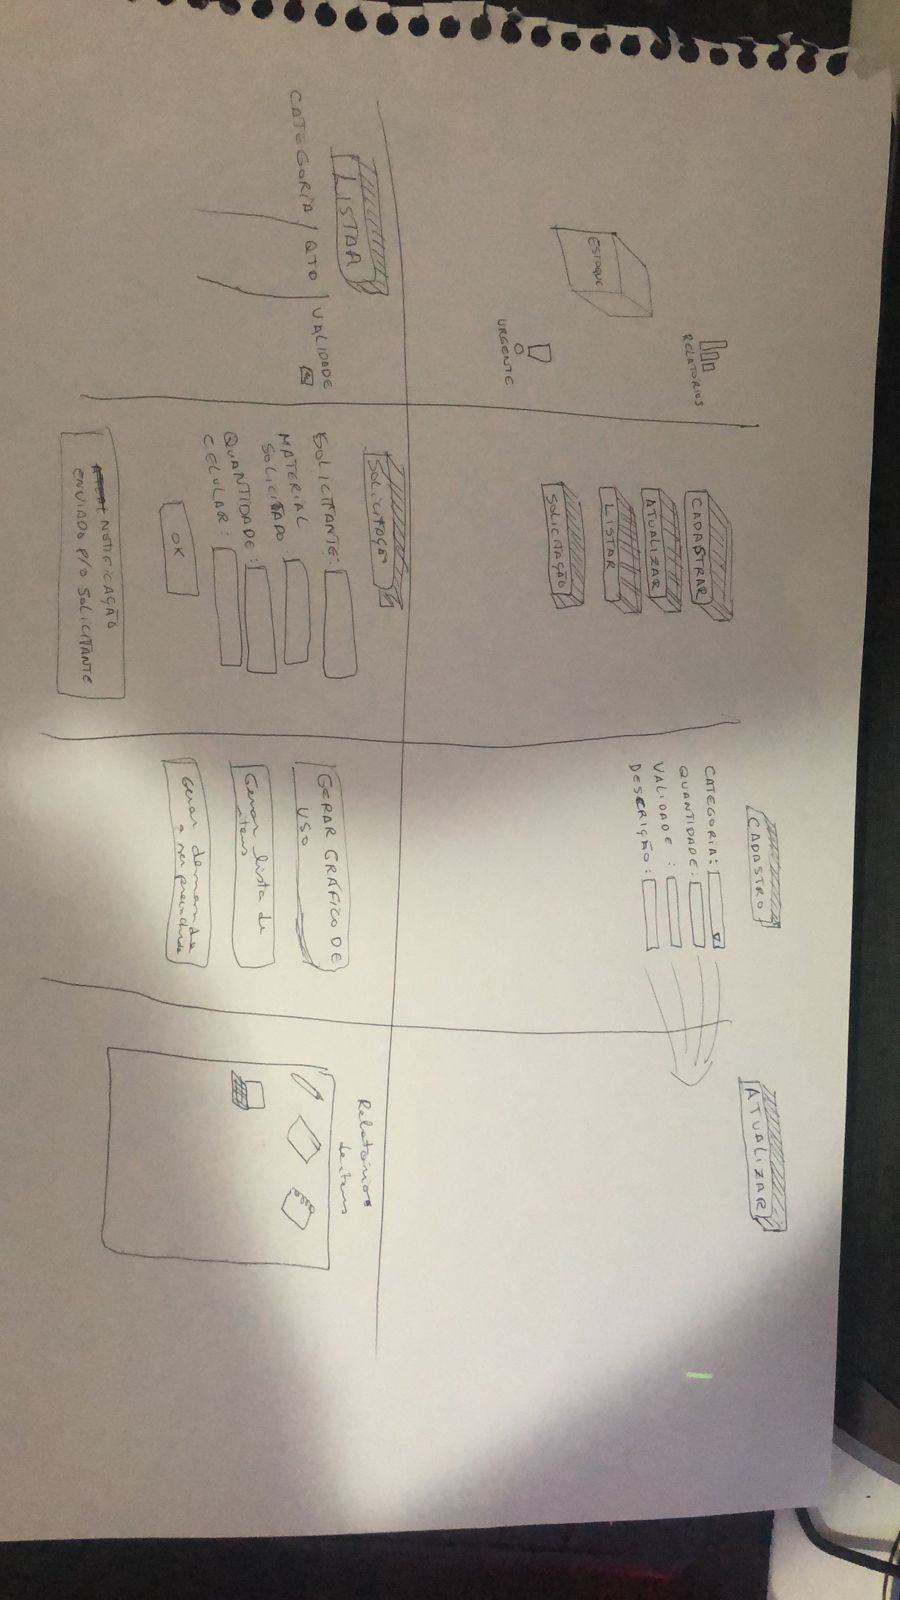 RELATÓRIOS
ESTOQUE
URGENTE
CADASTRAR
ATUALIZAR
LISTAR
SOLICITAÇÃO
CADASTRO
CATEGORIA:
QUANTIDADE:
VALIDADE:
DESCRIÇÃO:
ATUALIZAR
LISTAR
CATEGORIA / QTD / VALIDADE
SOLICITAÇÃO
SOLICITANTE:
MATERIAL
SOLICITADO:
QUANTIDADE:
CELULAR:
OK
NOTIFICAÇÃO
ENVIADO P/O SOLICITANTE
GERAR GRÁFICO DE
USO
Gerar lista de
itens
Gerar demanda
a ser preenchida
Relatórios
de itens